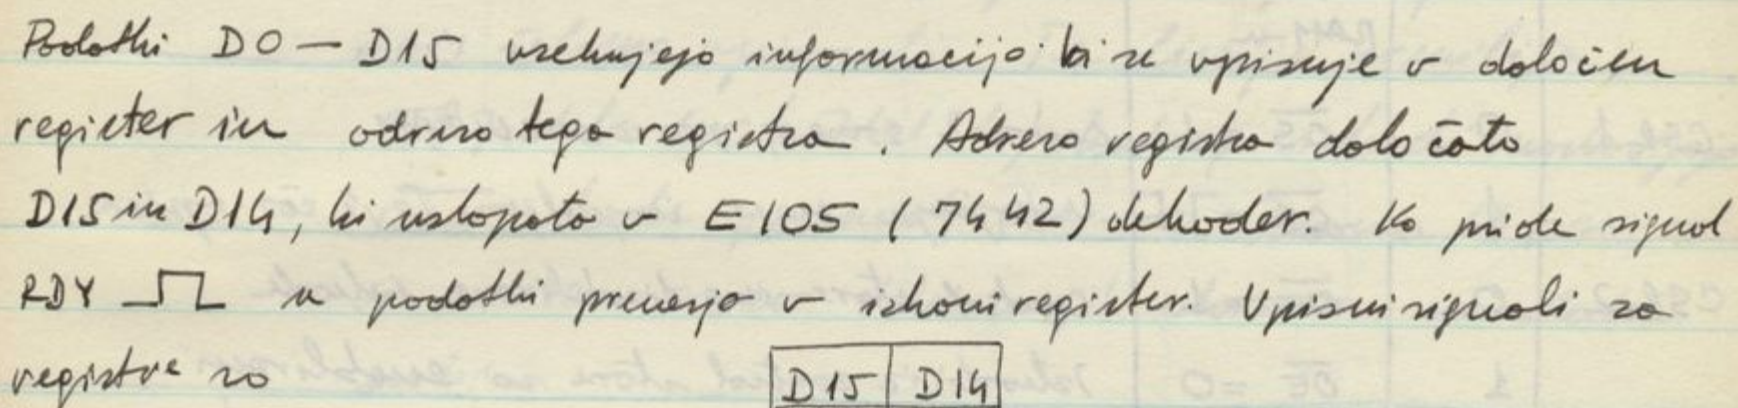 Podatki D0 — D15 vsebujejo informacijo ki se vpisuje v določen
register in adreso tega registra. Adreso registra določata
D15 in D14, ki vstopata v E105 (7442) dekoder. Ko pride signal
RDY se podatki prenesjo v izhoni register. Vpisni signali za
registre so
D15 D14